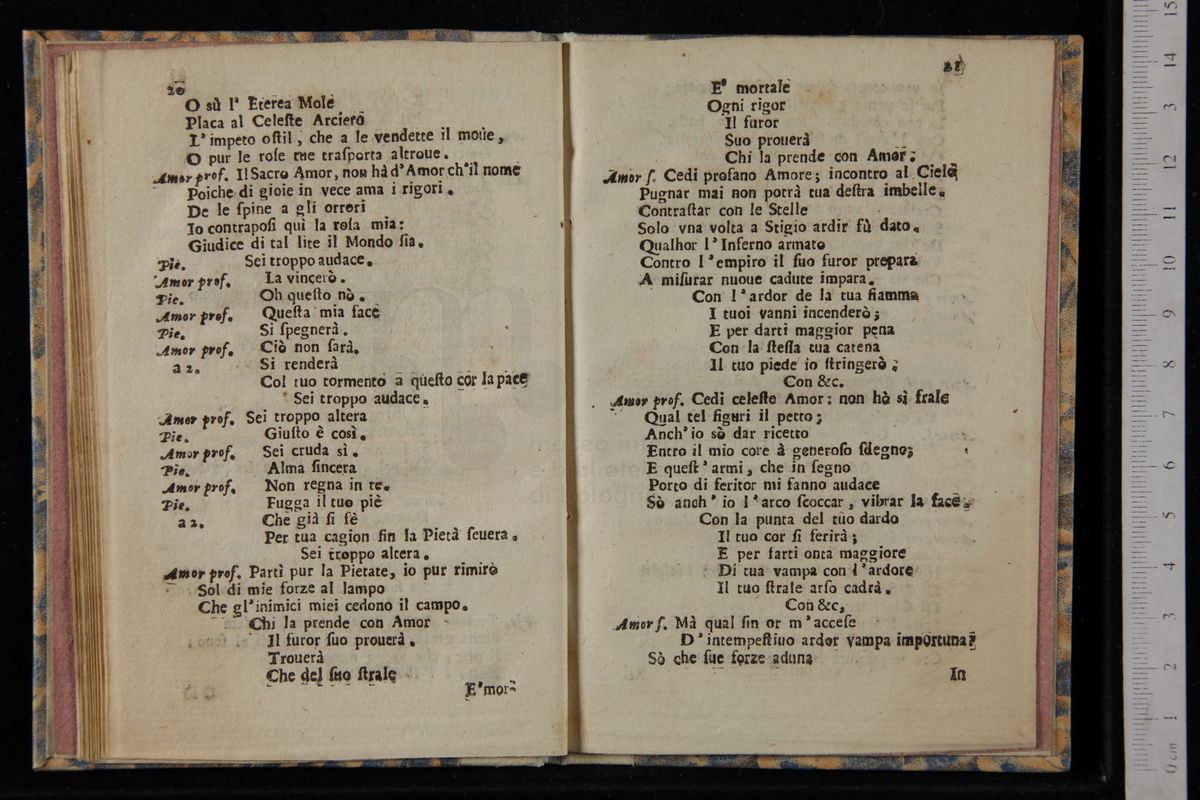 20
O sù l' Eterea Mole
Placa al Celeſte Arciero
L'impeto oſtil, che a le vendette il moue,
O pur le roſe me traſporta altroue.
Amor prof. Il Sacro Amor, non hà d'Amor ch'il nome
Poiche di gioie in vece ama i rigori.
De le ſpine a gli orrori
Io contrapoſi quì la roſa mia:
Giudice di tal lite il Mondo ſia.
Pie. Sei troppo audace.
Amor prof. La vincerò.
Pie. Oh queſto nò.
Amor prof. Queſta mia face
Pie. Si ſpegnerà.
Amor prof. Ciò non ſarà.
a 2. Si renderà
Col tuo tormento a queſto cor la pace
Sei troppo audace.
Amor prof. Sei troppo altera
Pie. Giuſto è così.
Amor prof. Sei cruda sì.
Pie. Alma ſincera
Amor prof. Non regna in te.
Pie. Fugga il tuo piè
a 2. Che già ſi fè
Per tua cagion fin la Pietà ſeuera.
Sei troppo altera.
Amor prof. Partì pur la Pietate, io pur rimirò
Sol di mie forze al lampo
Che gl'inimici miei cedono il campo.
Chi la prende con Amor
Il furor ſuo prouerà.
Trouerà
Che del ſuo ſtrale
E'mor-
21
E' mortale
Ogni rigor
Il furor
Suo prouerà
Chi la prende con Amor;
Amor ſ. Cedi profano Amore; incontro al Cielo
Pugnar mai non potrà tua deſtra imbelle.
Contraſtar con le Stelle
Solo vna volta a Stigio ardir fù dato.
Qualhor l'Inferno armato
Contro l'empiro il ſuo furor prepara
A miſurar nuoue cadute impara.
Con l'ardor de la tua fiamma
I tuoi vanni incenderò;
E per darti maggior pena
Con la ſteſſa tua catena
Il tuo piede io ſtringerò;
Con &c.
Amor prof. Cedi celeſte Amor: non ho sì frale
Qual tel figuri il petto;
Anch'io sò dar ricetto
Entro il mio core à generoſo ſdegno;
E queſt'armi, che in ſegno
Porto di feritor mi fanno audace
Sò anch' io l'arco ſcoccar, vibrar la face.
Con la punta del tuo dardo
Il tuo cor ſi ferirà;
E per farti onta maggiore
Di tua vampa con l'ardore
Il tuo ſtrale arſo cadrà.
Con &c,
Amor ſ. Mà qual fin or m'acceſe
D'intempeſtiuo ardor vampa importuna?
Sò che ſue forze aduna
In